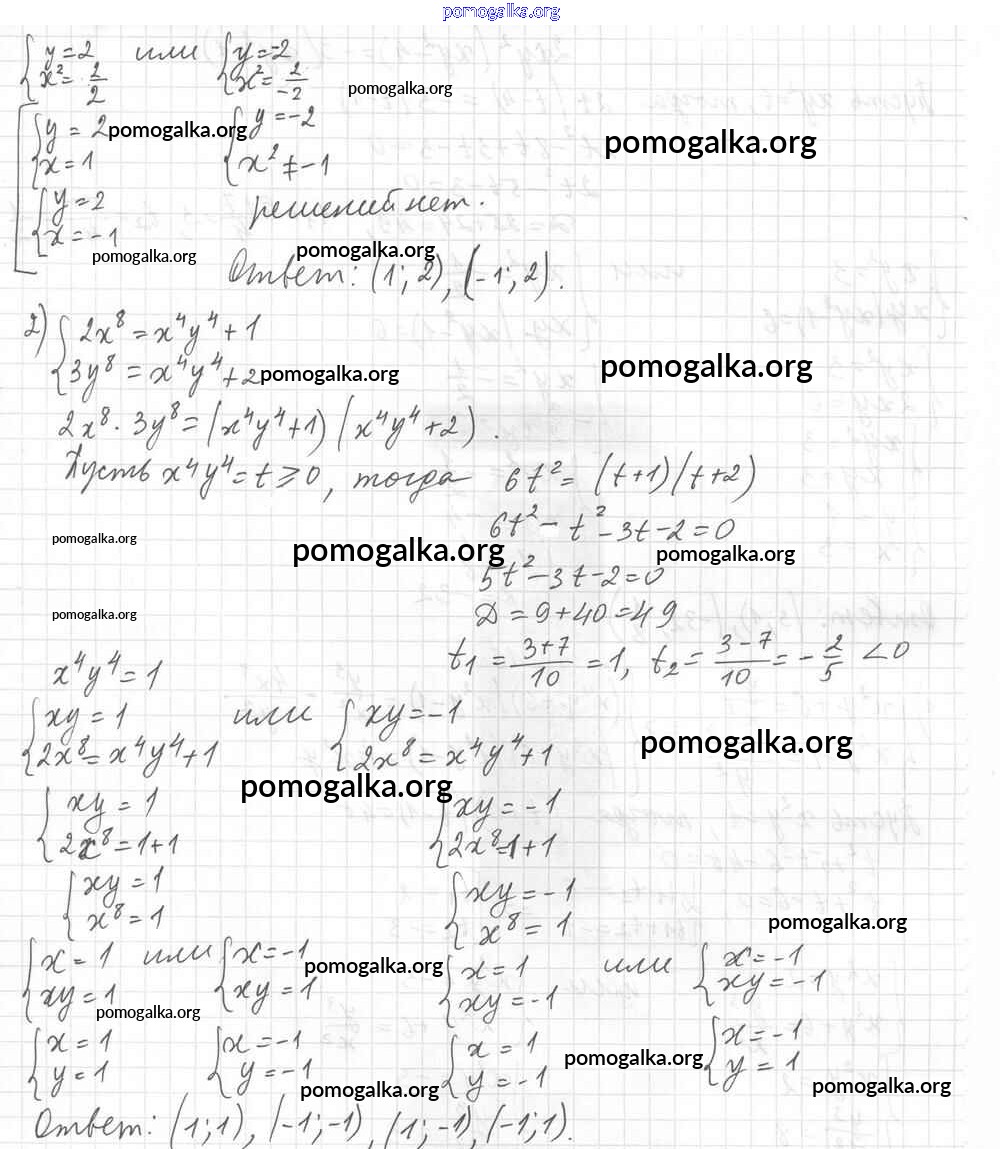 pomogalka.org
{y=2 или {y=-2
{x²=2/2 {x²=2/-2
pomogalka.org
{y=2 pomogalka.org {y=-2
pomogalka.org
{x=1 {x²≠-1
{y=2 решений нет.
{x=-1
pomogalka.org pomogalka.org
Ответ: (1; 2), (-1; 2).
2) {2x⁸=x⁴y⁴+1
{3y⁸=x⁴y⁴+2 pomogalka.org pomogalka.org
2x⁸·3y⁸=(x⁴y⁴+1)(x⁴y⁴+2).
Пусть x⁴y⁴=t⩾0, тогда 6t²=(t+1)(t+2)
6t²-t²-3t-2=0
pomogalka.org pomogalka.org pomogalka.org
5t²-3t-2=0
pomogalka.org
Д=9+40=49
t₁=3+7/10=1, t₂=3-7/10=-2/5<0
x⁴y⁴=1
{xy=1 или {xy=-1
{2x⁸=x⁴y⁴+1 {2x⁸=x⁴y⁴+1
pomogalka.org
pomogalka.org
{xy=1 {xy=-1
{2x⁸=1+1 {2x⁸=1+1
{xy=1 {xy=-1
{x⁸=1 {x⁸=1
pomogalka.org
{x=1 или {x=-1 {x=1 или {x=-1
pomogalka.org
{xy=1 {xy=1 {xy=-1 {xy=-1
pomogalka.org
{x=1 {x=-1 {x=1 {x=-1
pomogalka.org
{y=1 {y=-1 {y=-1 {y=1
pomogalka.org pomogalka.org
Ответ: (1;1), (-1;-1), (1;-1), (-1;1).